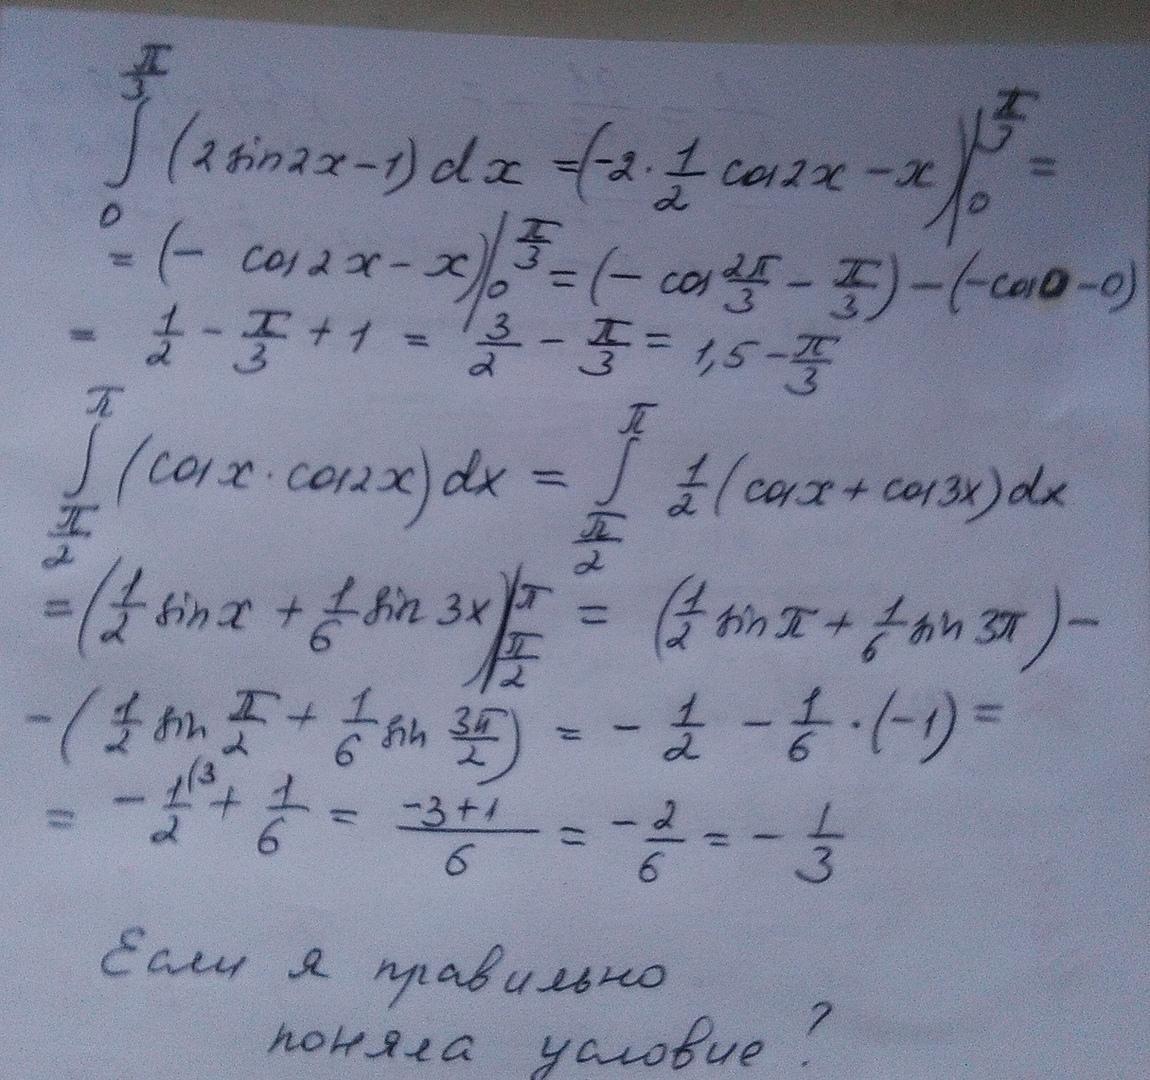 ∫₀^{π/3} (2sin2x-1)dx = (-2·1/2 cos2x - x)|₀^{π/3} =
= (- cos2x - x)|₀^{π/3} = (- cos 2π/3 - π/3) - (-cos0 - 0)
= 1/2 - π/3 + 1 = 3/2 - π/3 = 1,5 - π/3
∫_{π/2}^{π} (cosx·cos2x)dx = ∫_{π/2}^{π} 1/2(cosx + cos3x)dx
= (1/2 sinx + 1/6 sin 3x)|_{π/2}^{π} = (1/2 sinπ + 1/6 sin 3π) -
- (1/2 sin π/2 + 1/6 sin 3π/2) = - 1/2 - 1/6·(-1) =
= - 1/2⁽³ + 1/6 = (-3+1)/6 = - 2/6 = - 1/3
Если я правильно
поняла условие?